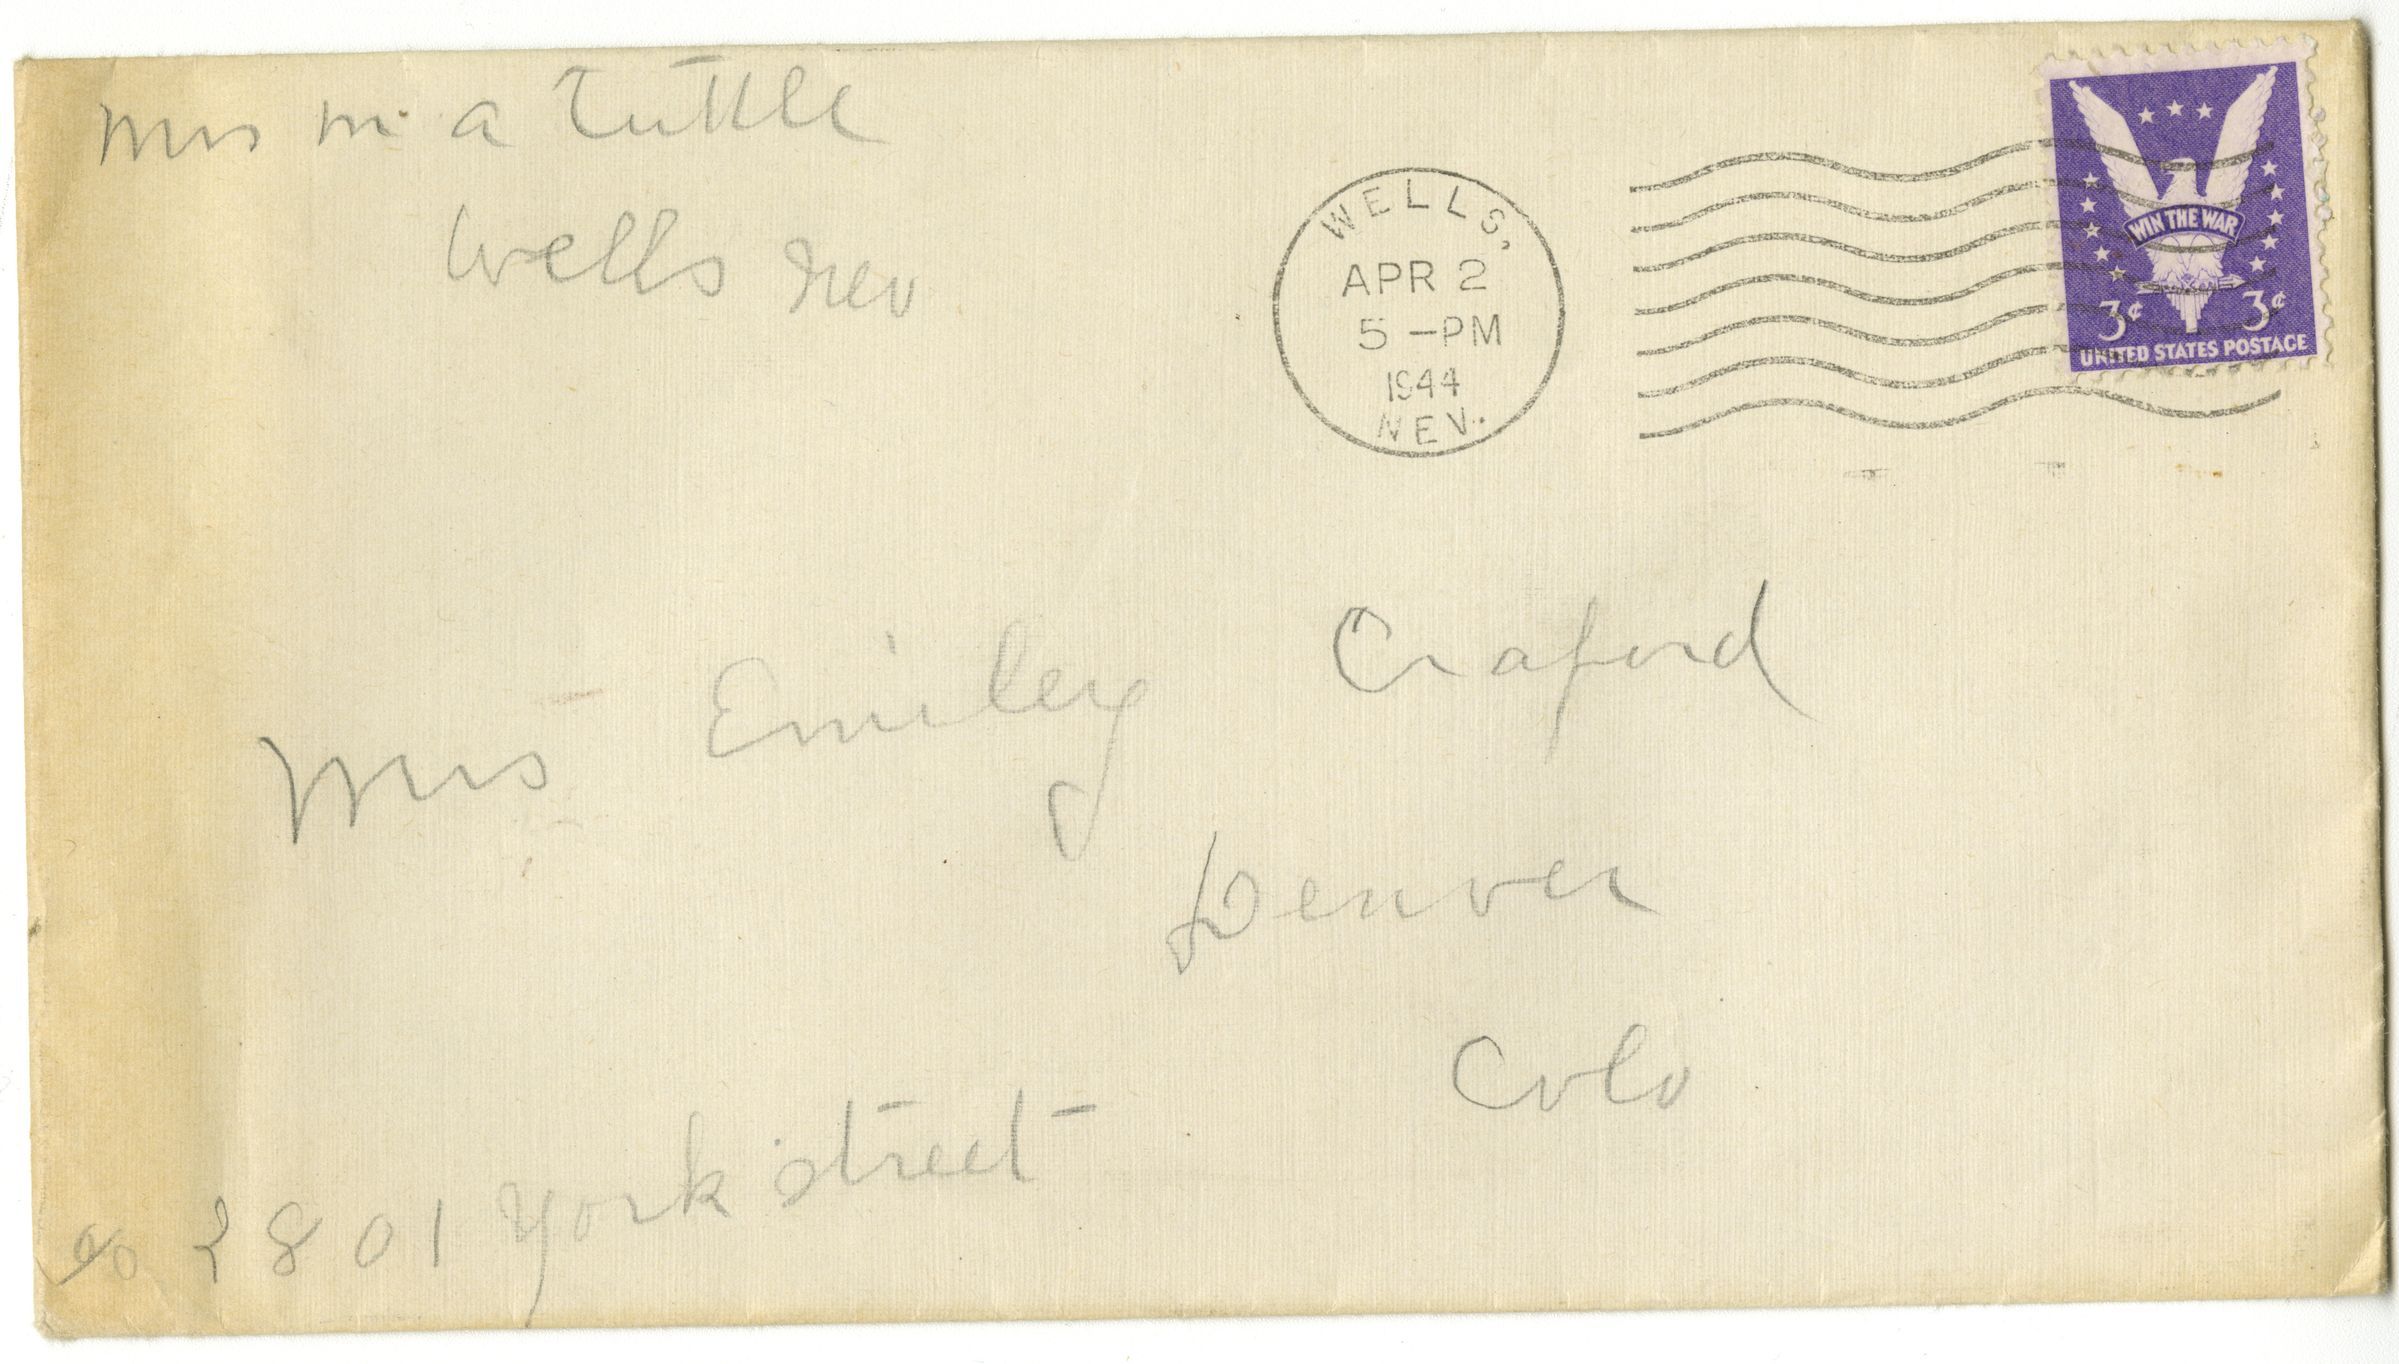 Mrs m. a Tuttle
Wells Nev
WELLS,
APR 2
5 -PM
1944
NEV.
WIN THE WAR
3¢ 3¢
UNITED STATES POSTAGE
Mrs Emiley Craford
Denver
Colo
c/o 2801 York street